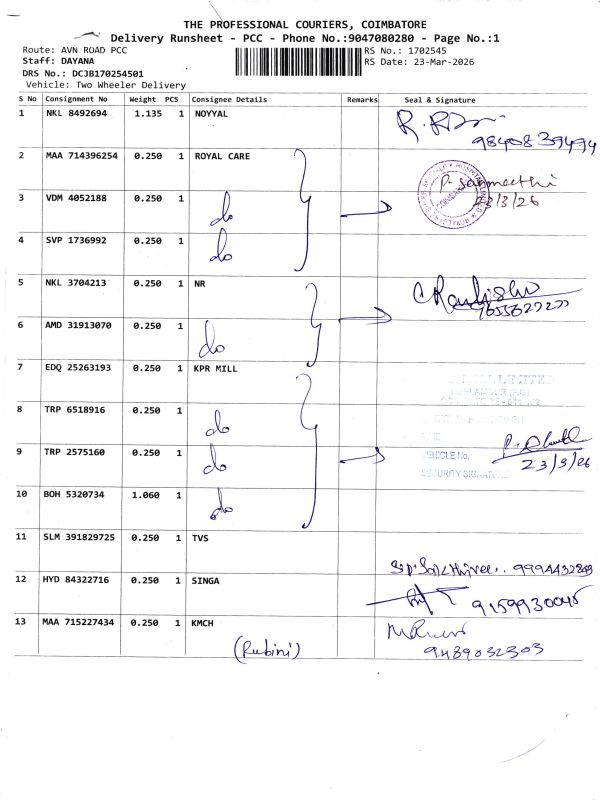 THE PROFESSIONAL COURIERS, COIMBATORE
Delivery Runsheet - PCC - Phone No.:9047080280 - Page No.:1
Route: AVN ROAD PCC
RS No.: 1702545
Staff: DAYANA
RS Date: 23-Mar-2026
DRS No.: DCJB170254501
Vehicle: Two Wheeler Delivery
S No Consignment No Weight PCS Consignee Details Remarks Seal & Signature
1 NKL 8492694 1.135 1 NOYYAL
2 MAA 714396254 0.250 1 ROYAL CARE
3 VDM 4052188 0.250 1 do 23/3/26
4 SVP 1736992 0.250 1 do
5 NKL 3704213 0.250 1 NR
6 AMD 31913070 0.250 1 do
7 EDQ 25263193 0.250 1 KPR MILL
8 TRP 6518916 0.250 1 do
9 TRP 2575160 0.250 1 do VEHICLE No. 23/3/26
10 BOH 5320734 1.060 1 do
11 SLM 391829725 0.250 1 TVS
12 HYD 84322716 0.250 1 SINGA
13 MAA 715227434 0.250 1 KMCH
(Rubini) 9489032303